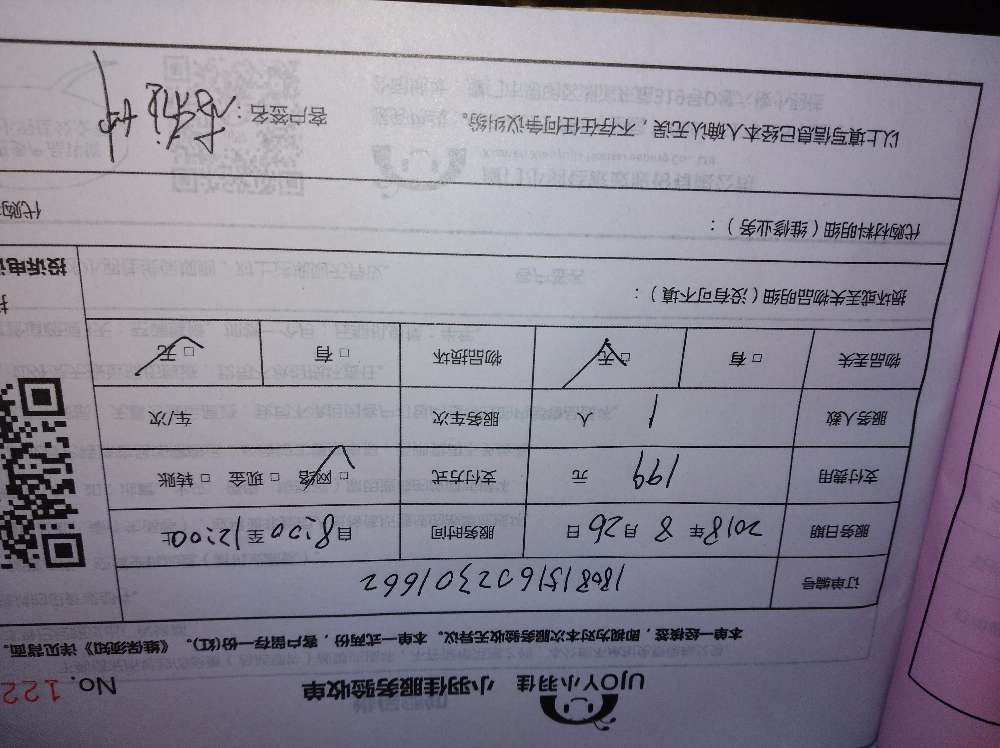 UJOY小羽佳 小羽佳服务验收单
No. 122
本单一经接签，即视为对本次服务验收无异议。本单一式两份，客户留存一份(红)。《维保须知》详见背面。
订单编号 1808151602301662
服务日期 2018 年 8 月 26 日 服务时间 自 8:00 至 12:00 止
支付费用 199 元 支付方式 □ 网络 □ 现金 □ 转账
服务人数 1 人 服务车次 车次
物品丢失 □ 有 □ 无 物品损坏 □ 有 □ 无
损坏或丢失物品明细（没有可不填）：
投诉电
代购材料明细（维修业务）：
代购
以上填写信息已经本人确认无误，不存在任何争议纠纷。 客户签名：